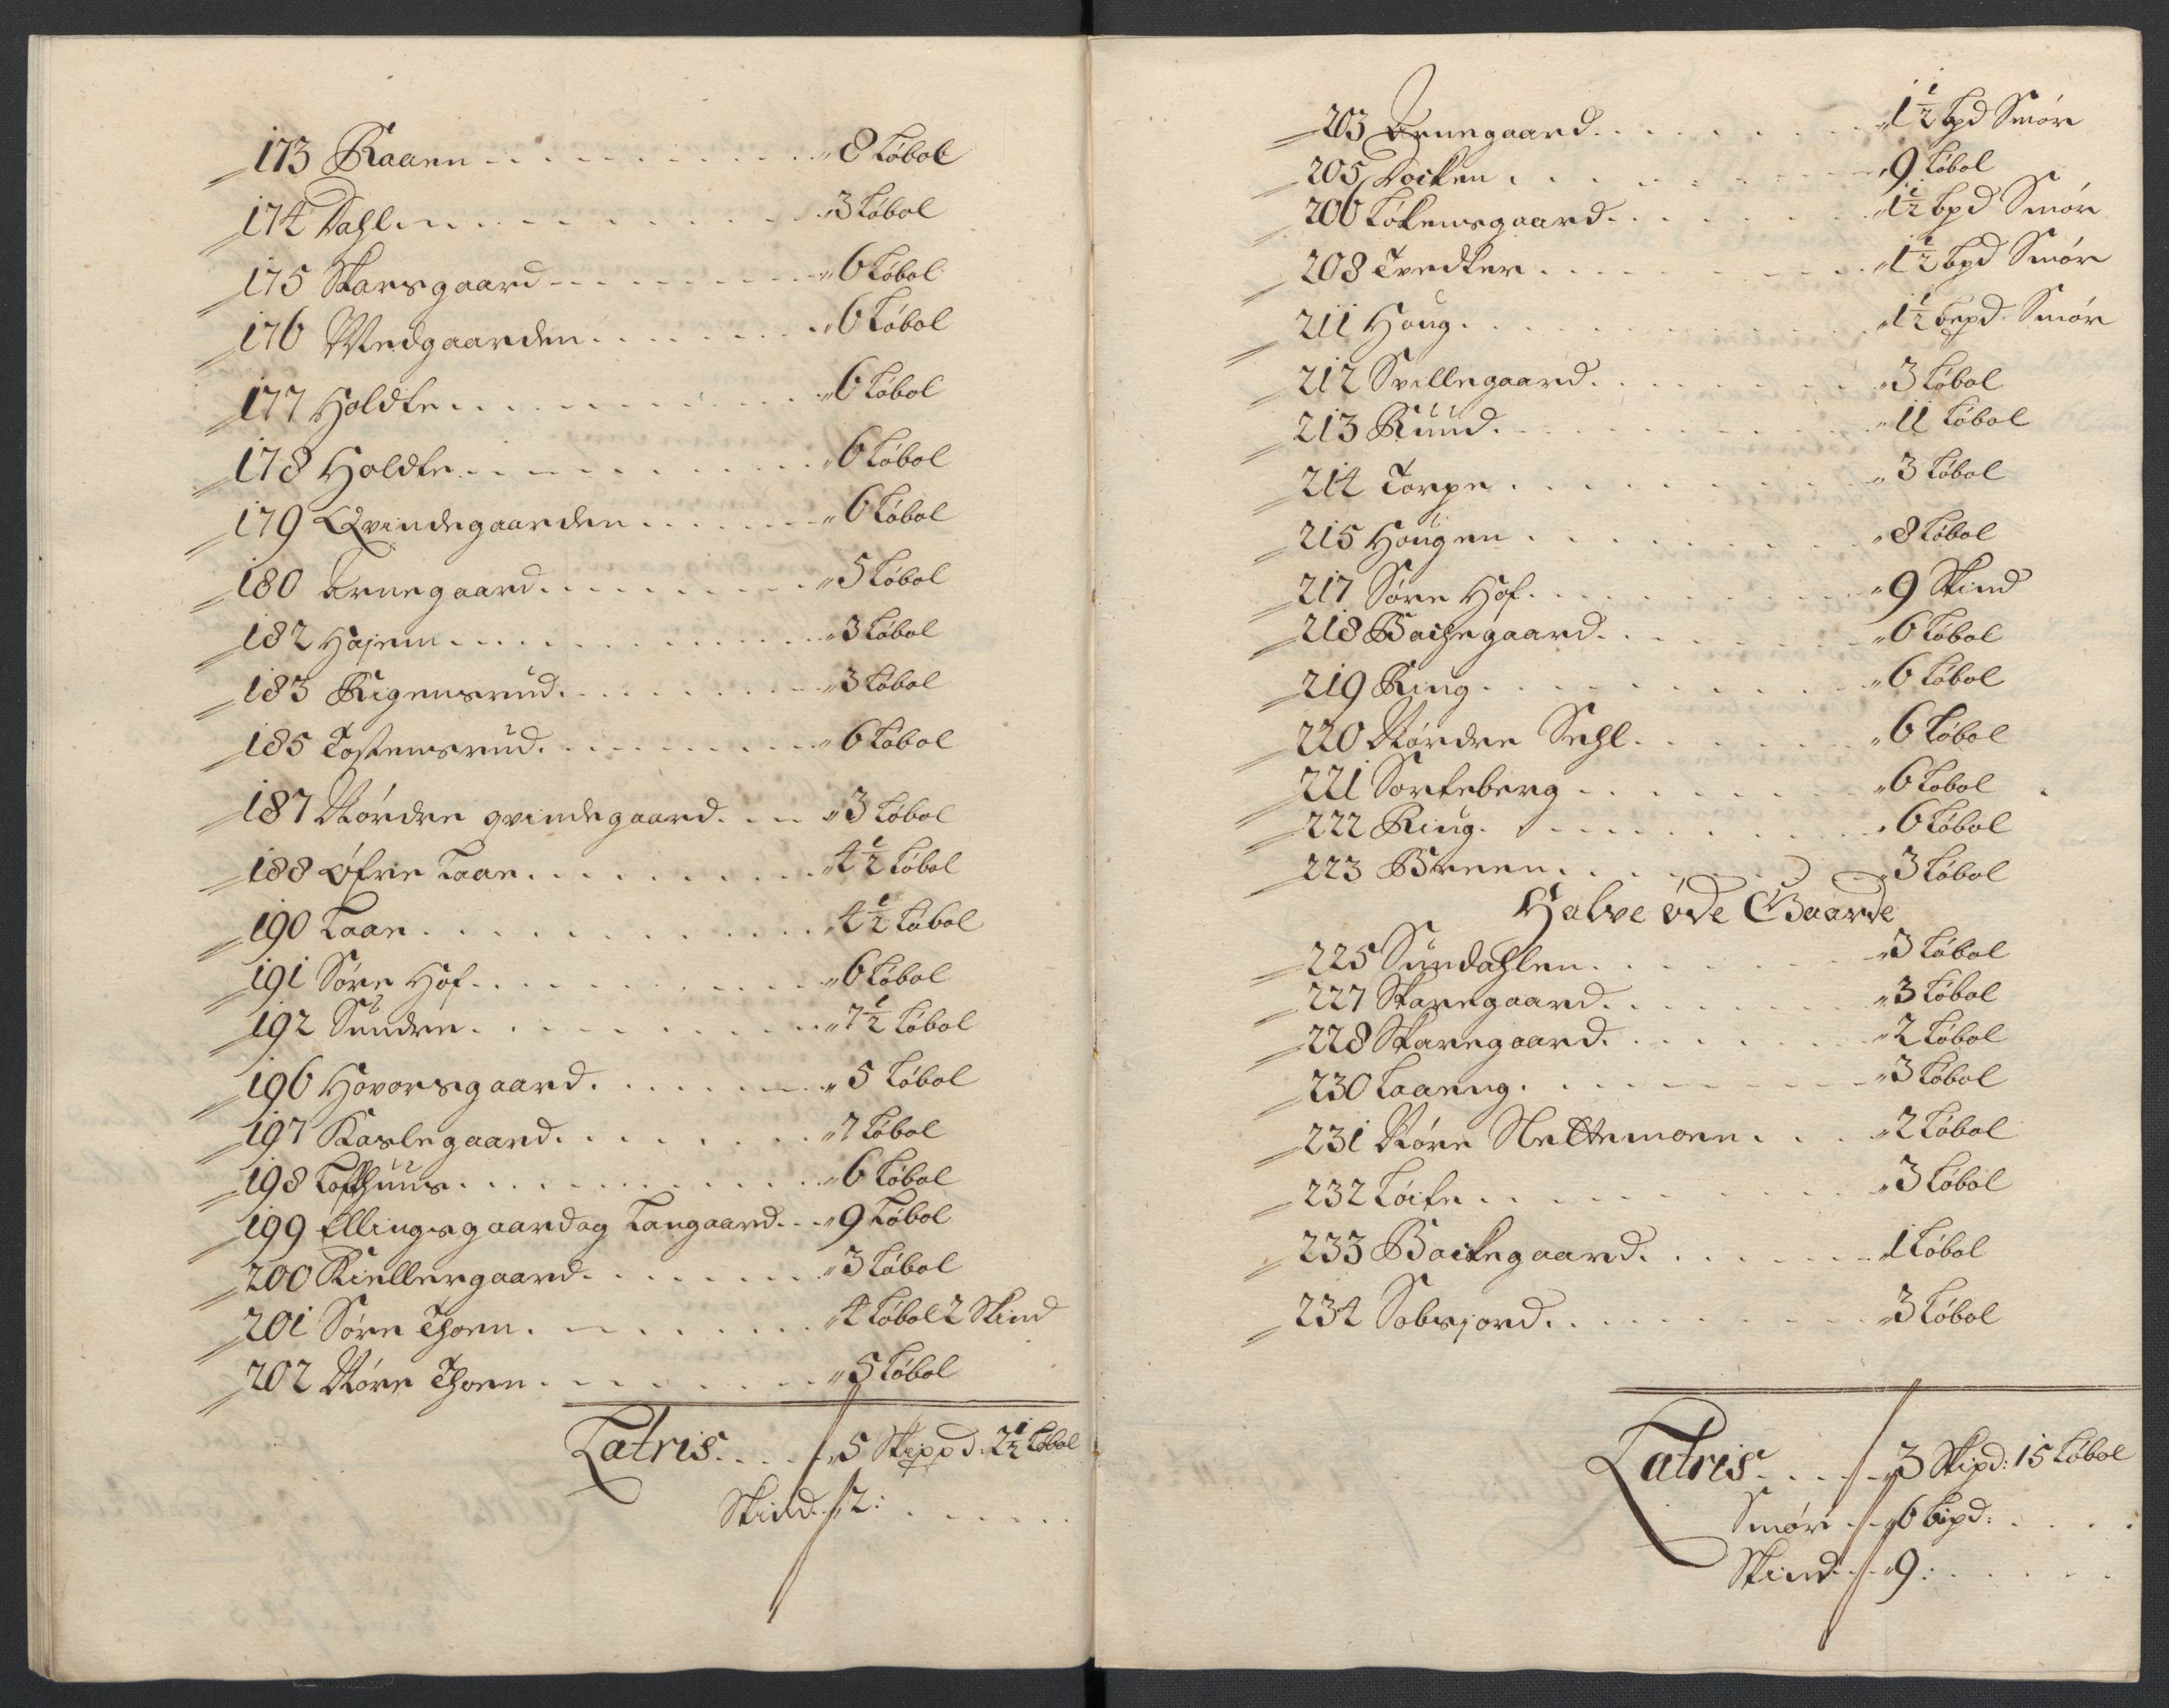 173 Raaen . . . . . . . . . . . 8 Løbol
174 Dahl . . . . . . . . . 3 Løbol
175 Skarsgaard . . . . . . . . . 6 Løbol
176 Medgaarden . . . . . . . 6 Løbol
177 Holdte . . . . . . . . . . 6 Løbol
178 Holdte . . . . . . . . . . 6 Løbol
179 Qvindegaarden . . . . . . 6 Løbol
180 Arnegaard . . . . . . . . . 5 Løbol
182 Hajem . . . . . . . . . . . 3 Løbol
183 Rigensrud . . . . . . . . . 3 Løbol
185 Tostensrud . . . . . . . . . 6 Løbol
187 Nørdre qvindegaard . . . 3 Løbol
188 Øfre Laae . . . . . . . . . 4½ Løbol
190 Laae . . . . . . . . . . . 4½ Løbol
191 Søre Hof . . . . . . . . . . 6 Løbol
192 Sundre . . . . . . . . . . 7½ Løbol
196 Hovorsgaard . . . . . . . 5 Løbol
197 Kaslegaard . . . . . . . . 7 Løbol
198 Lofthuus . . . . . . . . . . 6 Løbol
199 Ellingsgaard og Langaard . . . 9 Løbol
200 Kiellergaard . . . . . . . . 3 Løbol
201 Søre Thoen . . . . . . . . 4 Løbol 2 Skind
202 Nøre Thoen . . . . . . . . 5 Løbol
Latris . . . . 5 Skippd: 2½ Løbol
Skind . . 2: . . . . . .
203 Arnegaard . . . . . . . . 1½ bpd Smør
205 Docken . . . . . . . . . 9 Løbol
206 Løkensgaard . . . . . . . 1½ bpd Smør
208 Tvedter . . . . . . . . . 1½ bpd Smør
211 Houg . . . . . . . . . . 1½ bpd Smør
212 Svillegaard . . . . . . . . 3 Løbol
213 Ruud . . . . . . . . . . . 11 Løbol
214 Torpe . . . . . . . . . . 3 Løbol
215 Hougen . . . . . . . . . 8 Løbol
217 Søre Hof . . . . . . . . . 9 Skind
218 Bachegaard . . . . . . . 6 Løbol
219 Ring . . . . . . . . . . 6 Løbol
220 Nørdre Sehl . . . . . . . 6 Løbol
221 Sorteberg . . . . . . . . 6 Løbol
222 Ring . . . . . . . . . . 6 Løbol
223 Breen . . . . . . . . . 3 Løbol
Halve øde Gaarde
225 Sundahlen . . . . . . . . 3 Løbol
227 Skaregaard . . . . . . . 3 Løbol
228 Skaregaard . . . . . . . 2 Løbol
230 Laaeng . . . . . . . . . 3 Løbol
231 Nøre Slettemoen . . . . 2 Løbol
232 Løite . . . . . . . . . . 3 Løbol
233 Backegaard . . . . . . . 1 Løbol
234 Sobsjord . . . . . . . . . 3 Løbol
Latris . . . . 3 Skipd: 15 Løbol
Smør . . 6 bpd: . . . .
Skind . . 9: . . . . . .